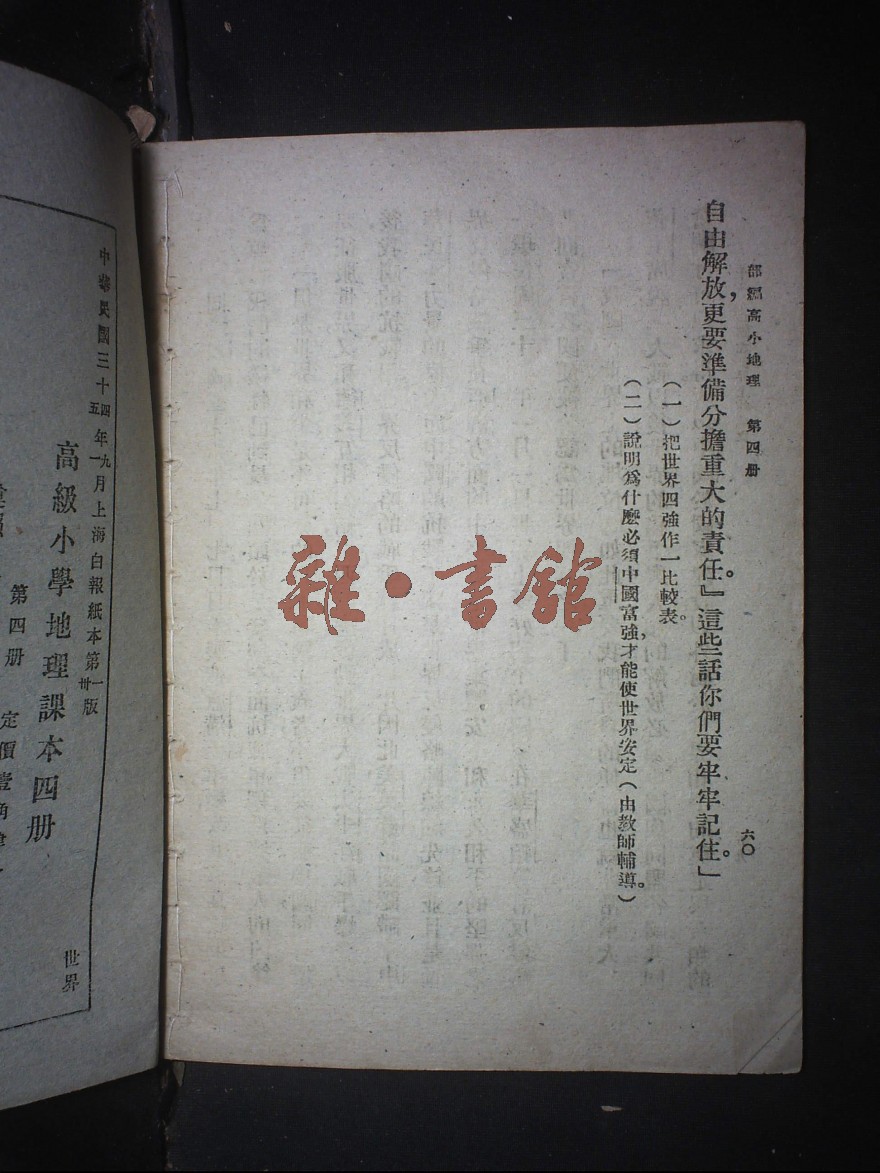 部編高小地理　第四册
六〇
自由解放，更要準備分擔重大的責任。』這些話你們要牢牢記住。」
（一）把世界四強作一比較表。
（二）說明爲什麽必須中國富強，才能使世界安定（由教師輔導。）
雜·書館
中華民國三十四年九月上海白報紙本第一版
五一卅
高級小學地理課本四册
第四册　定價壹角
世界